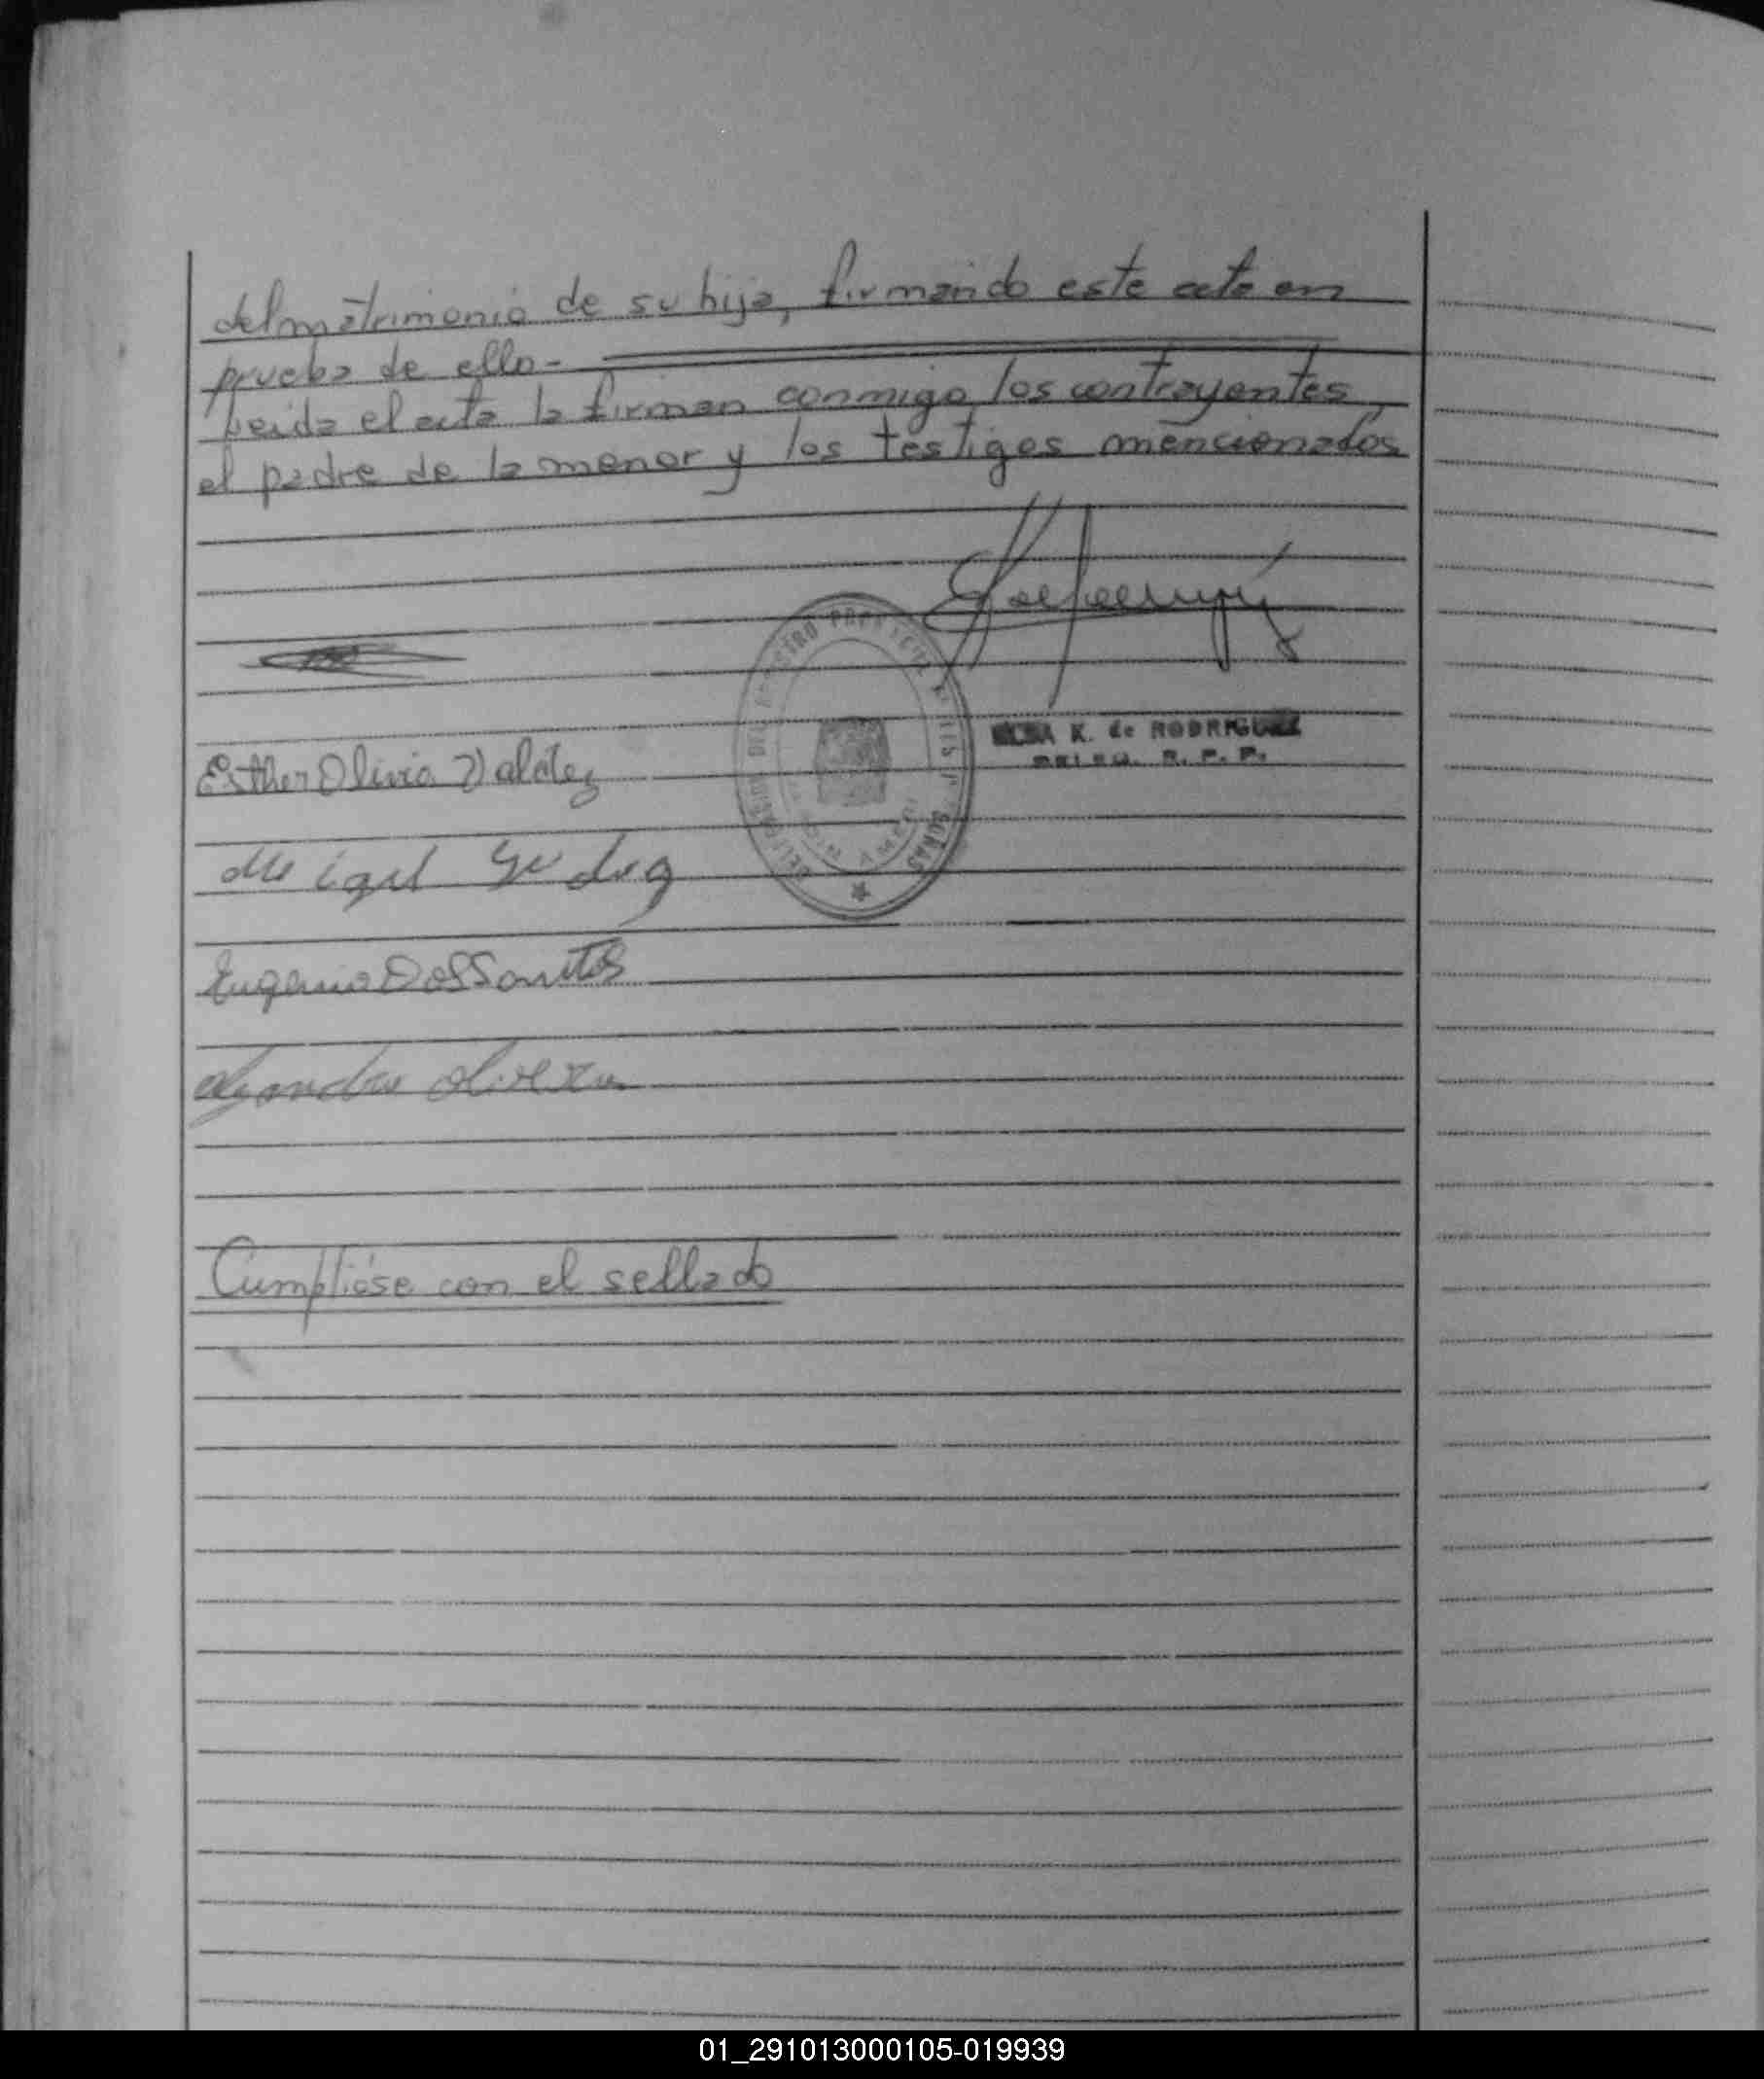 del matrimonio de su hija, firmando este acta en
prueba de ello-
Leida el acta la firman conmigo los contrayentes,
el padre de la menor y los testigos mencionados
K. de RODRIGUEZ
R. P. P.
Esther Olivia Valdez
Eugenio Dos Santos
Cumplióse con el sellado
01_291013000105-019939